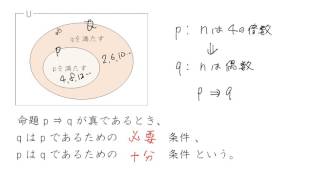 U
P Q
qを満たす
P
pを満たす
4,8,12,...
2,6,10...
p: nは4の倍数
⇓
q: nは偶数
p ⇒ q
命題 p ⇒ q が真であるとき、
q は p であるための 必要 条件、
p は q であるための 十分 条件 という。